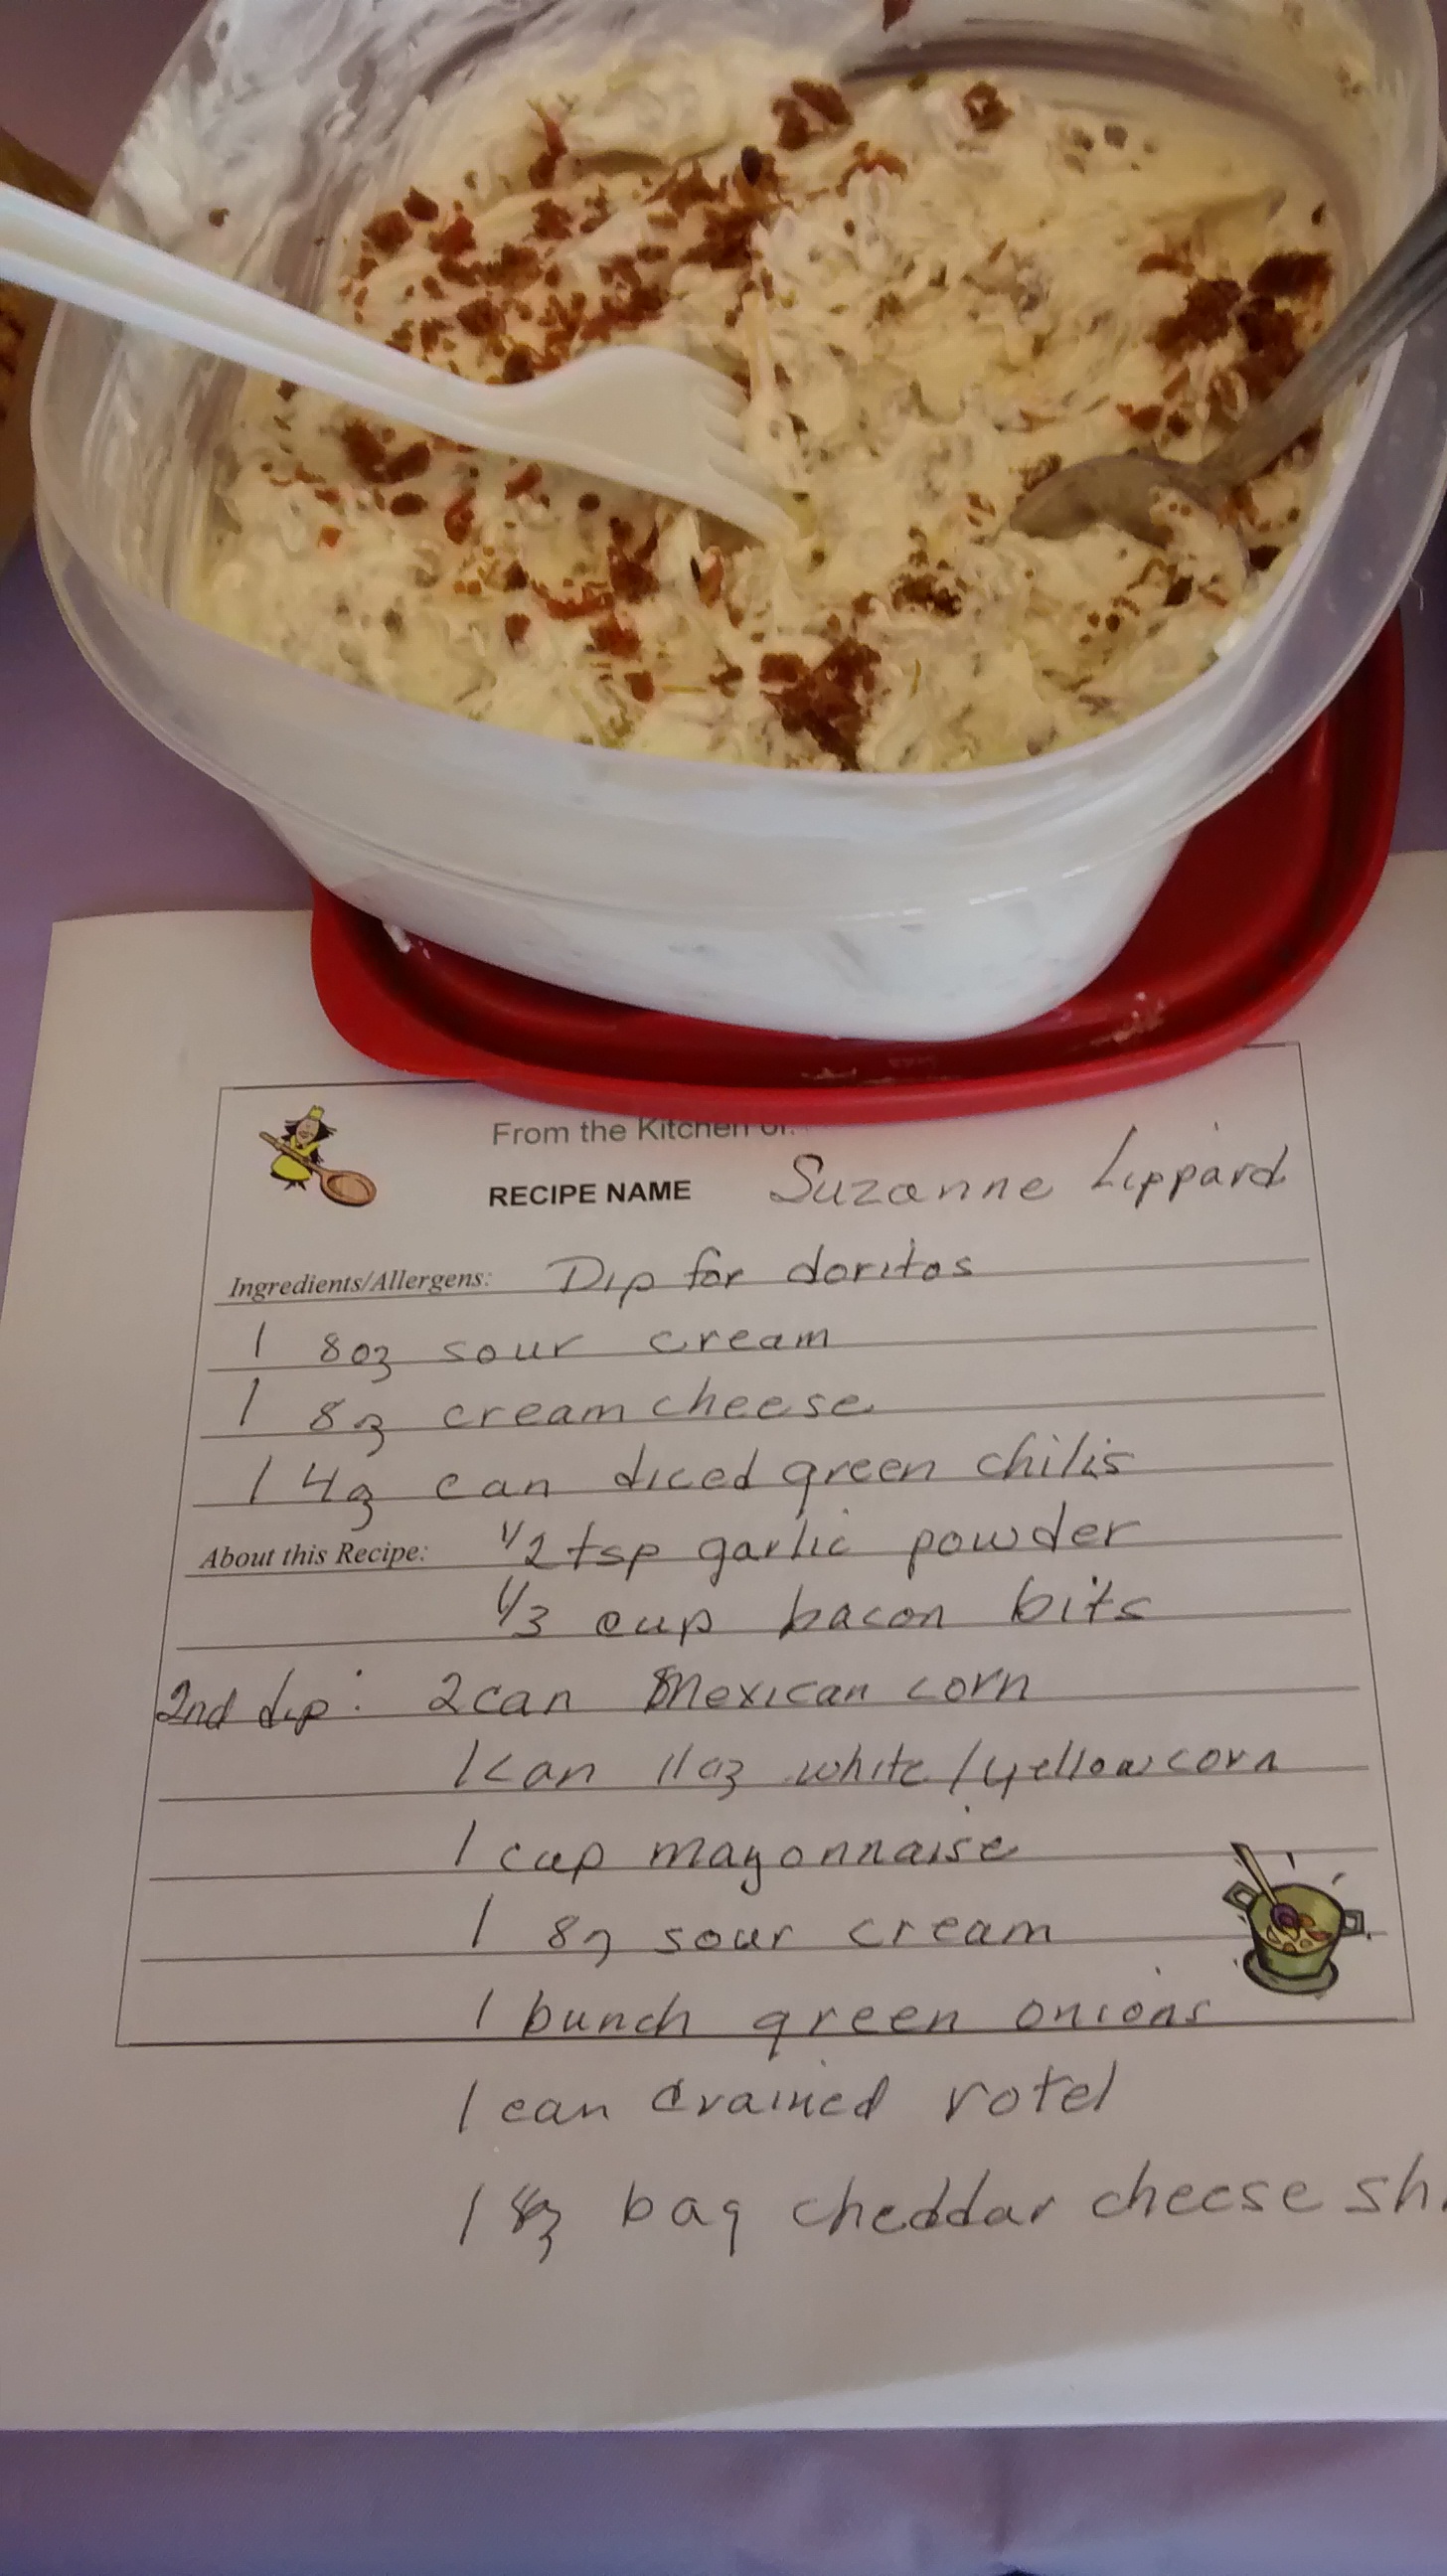 From the Kitchen of:
RECIPE NAME Suzanne Lippard
Ingredients/Allergens: Dip for doritos
1 8oz sour cream
1 8oz cream cheese
1 4oz can diced green chilis
About this Recipe: 1/2 tsp garlic powder
1/3 cup bacon bits
2nd dip: 2 can Mexican corn
1 can 11 oz white/yellow corn
1 cup mayonnaise
1 8oz sour cream
1 bunch green onions
1 can drained rotel
1 8oz bag cheddar cheese